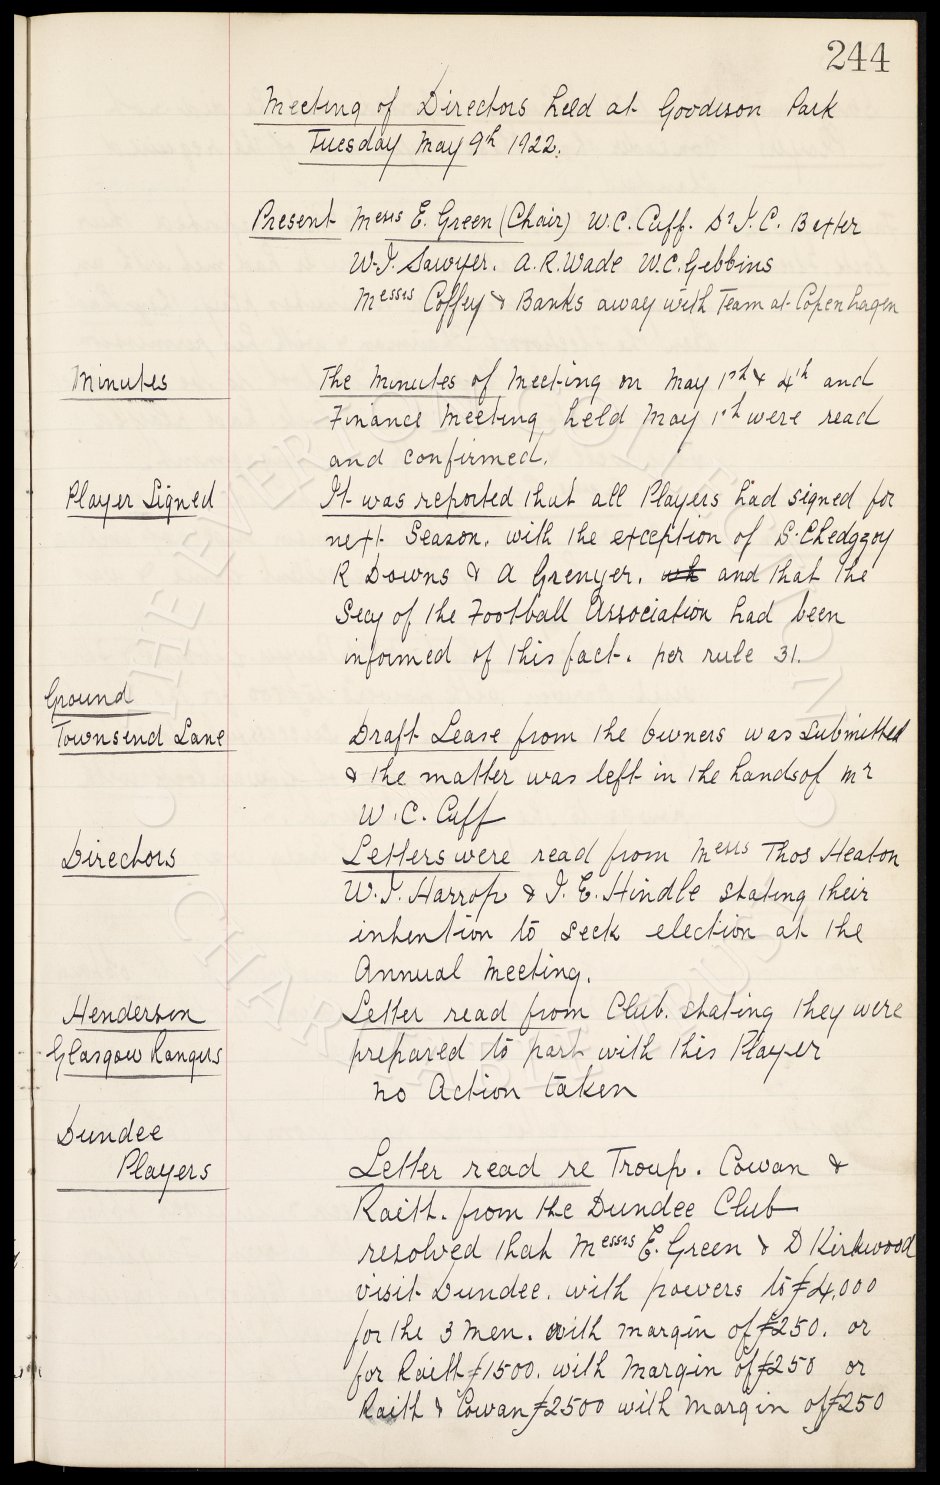 244
Meeting of Directors held at Goodison Park
Tuesday May 9th 1922.
Present Messrs E. Green (Chair) W.C. Cuff. Dr J.C. Baxter
W.J. Sawyer. A.R. Wade W.C. Gibbins
Messrs Coffey & Banks away with Team at Copenhagen
Minutes
The Minutes of Meeting on May 1st & 4th and
Finance Meeting held May 1st were read
and confirmed.
Player Signed
It was reported that all Players had signed for
next Season. with the exception of S. Chedgzoy
R Downs & A Grenyer. wh and that the
Secy of the Football Association had been
informed of this fact. per rule 31.
Ground
Townsend Lane
Draft Lease from the owners was submitted
& the matter was left in the hands of Mr
W.C. Cuff
Directors
Letters were read from Messrs Thos Heaton
W.J. Harrop & J.E. Hindle stating their
intention to seek election at the
Annual Meeting.
Henderson
Glasgow Rangers
Letter read from Club. stating they were
prepared to part with this Player
no Action taken
Dundee
Players
Letter read re Troup. Cowan &
Raitt. from the Dundee Club
resolved that Messrs E. Green & D Kirkwood
visit Dundee. with powers to £4,000
for the 3 men. with margin of £250. or
for Raitt £1500. with Margin of £250 or
Raith & Cowan £2500 with margin of £250
THE EVERTON COLLECTION
CHARITABLE TRUST